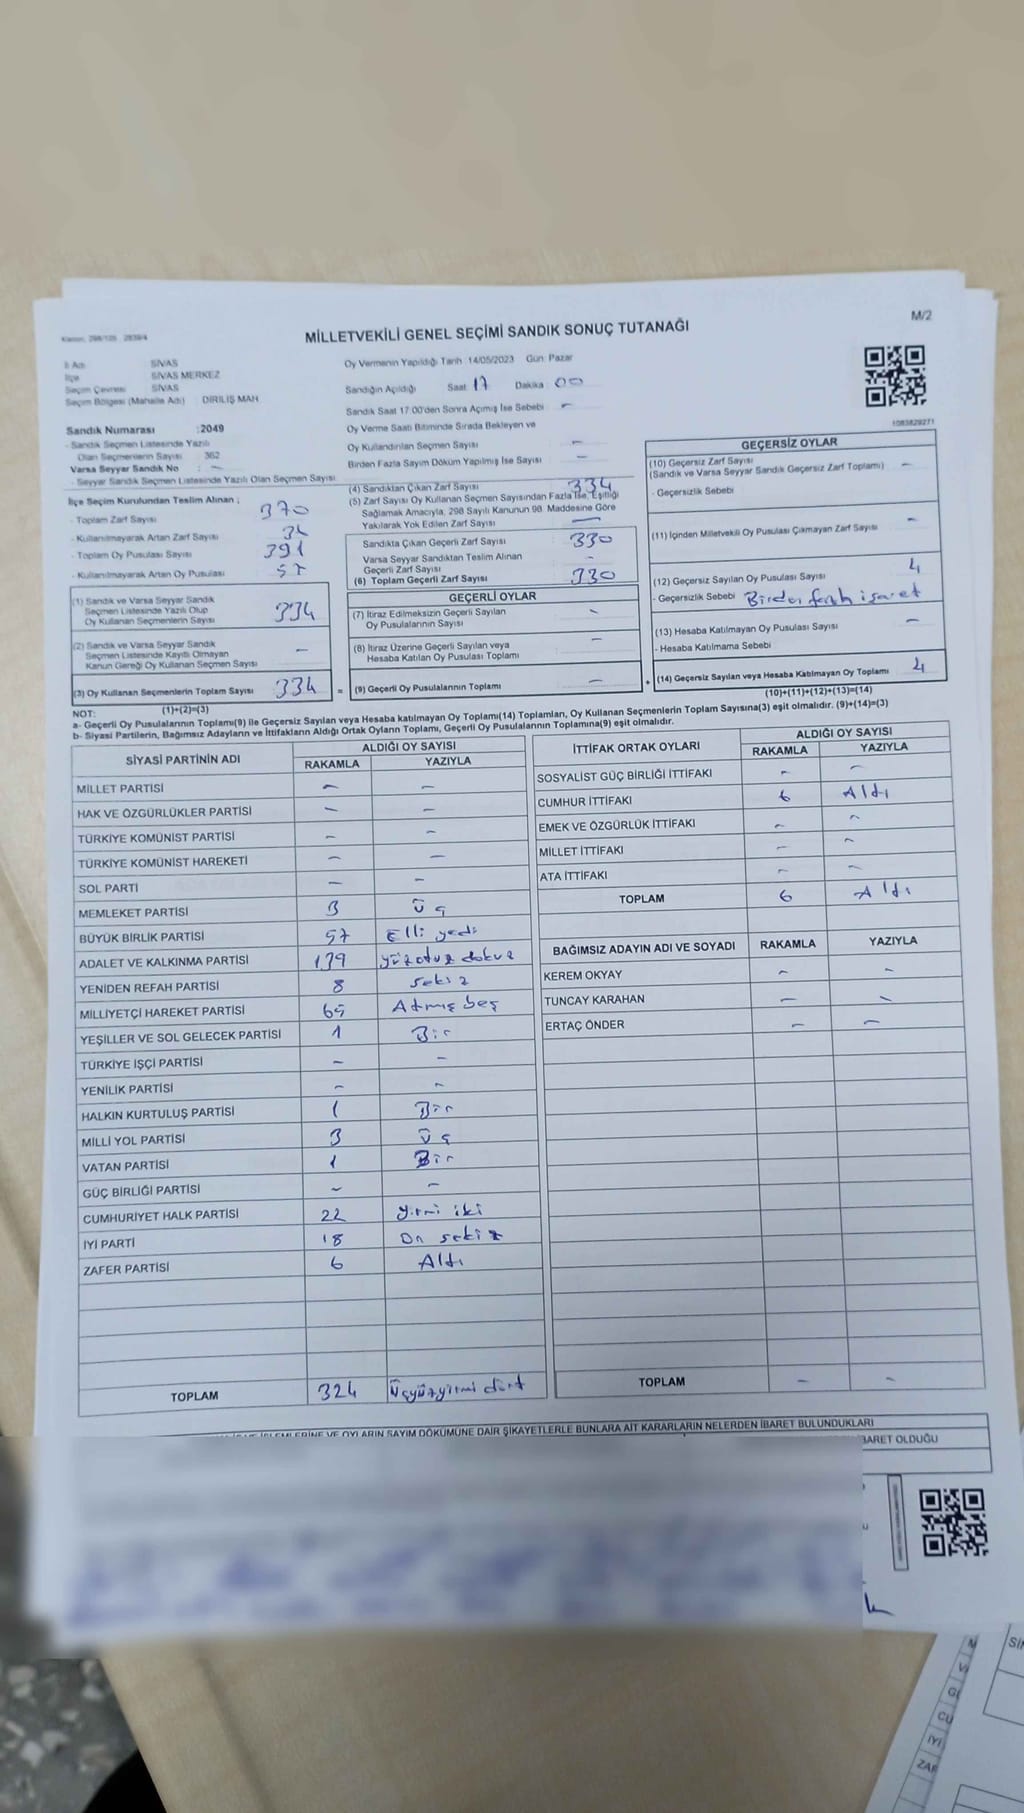 M/2
MİLLETVEKİLİ GENEL SEÇİMİ SANDIK SONUÇ TUTANAĞI
İl Adı SİVAS
İlçe SİVAS MERKEZ
Seçim Çevresi SİVAS
Seçim Bölgesi (Mahalle Adı) DİRİLİŞ MAH.
Sandık Numarası :2049
- Sandık Seçmen Listesinde Yazılı
Olan Seçmenlerin Sayısı 362
Varsa Seyyar Sandık No : -
- Seyyar Sandık Seçmen Listesinde Yazılı Olan Seçmen Sayısı
Oy Vermenin Yapıldığı Tarih 14/05/2023 Gün: Pazar
Sandığın Açıldığı Saat 17 Dakika 00
Sandık Saat 17:00'den Sonra Açımış İse Sebebi -
Oy Verme Saati Bitiminde Sırada Bekleyen ve
Oy Kullandırılan Seçmen Sayısı -
Birden Fazla Sayım Döküm Yapılmış İse Sayısı -
1083829271
İlçe Seçim Kurulundan Teslim Alınan ;
- Toplam Zarf Sayısı 370
- Kullanılmayarak Artan Zarf Sayısı 36
- Toplam Oy Pusulası Sayısı 391
- Kullanılmayarak Artan Oy Pusulası 57
(1) Sandık ve Varsa Seyyar Sandık
Seçmen Listesinde Yazılı Olup
Oy Kullanan Seçmenlerin Sayısı 334
(2) Sandık ve Varsa Seyyar Sandık
Seçmen Listesinde Kayıtlı Olmayan
Kanun Gereği Oy Kullanan Seçmen Sayısı -
(3) Oy Kullanan Seçmenlerin Toplam Sayısı 334 =
(1)+(2)=(3)
(4) Sandıktan Çıkan Zarf Sayısı 334
(5) Zarf Sayısı Oy Kullanan Seçmen Sayısından Fazla İse, Eşitliği
Sağlamak Amacıyla, 298 Sayılı Kanunun 98. Maddesine Göre
Yakılarak Yok Edilen Zarf Sayısı -
Sandıkta Çıkan Geçerli Zarf Sayısı 330
Varsa Seyyar Sandıktan Teslim Alınan
Geçerli Zarf Sayısı -
(6) Toplam Geçerli Zarf Sayısı 330
GEÇERLİ OYLAR
(7) İtiraz Edilmeksizin Geçerli Sayılan
Oy Pusulalarının Sayısı -
(8) İtiraz Üzerine Geçerli Sayılan veya
Hesaba Katılan Oy Pusulası Toplamı -
(9) Geçerli Oy Pusulalarının Toplamı - +
GEÇERSİZ OYLAR
(10) Geçersiz Zarf Sayısı
(Sandık ve Varsa Seyyar Sandık Geçersiz Zarf Toplamı) -
- Geçersizlik Sebebi
(11) İçinden Milletvekili Oy Pusulası Çıkmayan Zarf Sayısı -
(12) Geçersiz Sayılan Oy Pusulası Sayısı 4
- Geçersizlik Sebebi Birden fazla işaret
(13) Hesaba Katılmayan Oy Pusulası Sayısı -
- Hesaba Katılmama Sebebi
(14) Geçersiz Sayılan veya Hesaba Katılmayan Oy Toplamı 4
(10)+(11)+(12)+(13)=(14)
NOT:
a- Geçerli Oy Pusulalarının Toplamı(9) ile Geçersiz Sayılan veya Hesaba katılmayan Oy Toplamı(14) Toplamları, Oy Kullanan Seçmenlerin Toplam Sayısına(3) eşit olmalıdır. (9)+(14)=(3)
b- Siyasi Partilerin, Bağımsız Adayların ve İttifakların Aldığı Ortak Oyların Toplamı, Geçerli Oy Pusulalarının Toplamına(9) eşit olmalıdır.
SİYASİ PARTİNİN ADI ALDIĞI OY SAYISI
RAKAMLA YAZIYLA
MİLLET PARTİSİ - -
HAK VE ÖZGÜRLÜKLER PARTİSİ - -
TÜRKİYE KOMÜNİST PARTİSİ - -
TÜRKİYE KOMÜNİST HAREKETİ - -
SOL PARTİ - -
MEMLEKET PARTİSİ 3 Üç
BÜYÜK BİRLİK PARTİSİ 57 Elli yedi
ADALET VE KALKINMA PARTİSİ 139 yüzotuz dokuz
YENİDEN REFAH PARTİSİ 8 sekiz
MİLLİYETÇİ HAREKET PARTİSİ 65 Atmış beş
YEŞİLLER VE SOL GELECEK PARTİSİ 1 Bir
TÜRKİYE İŞÇİ PARTİSİ - -
YENİLİK PARTİSİ - -
HALKIN KURTULUŞ PARTİSİ 1 Bir
MİLLİ YOL PARTİSİ 3 üç
VATAN PARTİSİ 1 Bir
GÜÇ BİRLİĞİ PARTİSİ - -
CUMHURİYET HALK PARTİSİ 22 yirmi iki
İYİ PARTİ 18 On sekiz
ZAFER PARTİSİ 6 Altı
TOPLAM 324 Üçyüzyirmi dört
İTTİFAK ORTAK OYLARI ALDIĞI OY SAYISI
RAKAMLA YAZIYLA
SOSYALİST GÜÇ BİRLİĞİ İTTİFAKI - -
CUMHUR İTTİFAKI 6 Altı
EMEK VE ÖZGÜRLÜK İTTİFAKI - -
MİLLET İTTİFAKI - -
ATA İTTİFAKI - -
TOPLAM 6 Altı
BAĞIMSIZ ADAYIN ADI VE SOYADI RAKAMLA YAZIYLA
KEREM OKYAY - -
TUNCAY KARAHAN - -
ERTAÇ ÖNDER - -
TOPLAM - -
OYLARIN SAYIM DÖKÜMÜNE DAİR ŞİKAYETLERLE BUNLARA AİT KARARLARIN NELERDEN İBARET BULUNDUKLARI
İBARET OLDUĞU